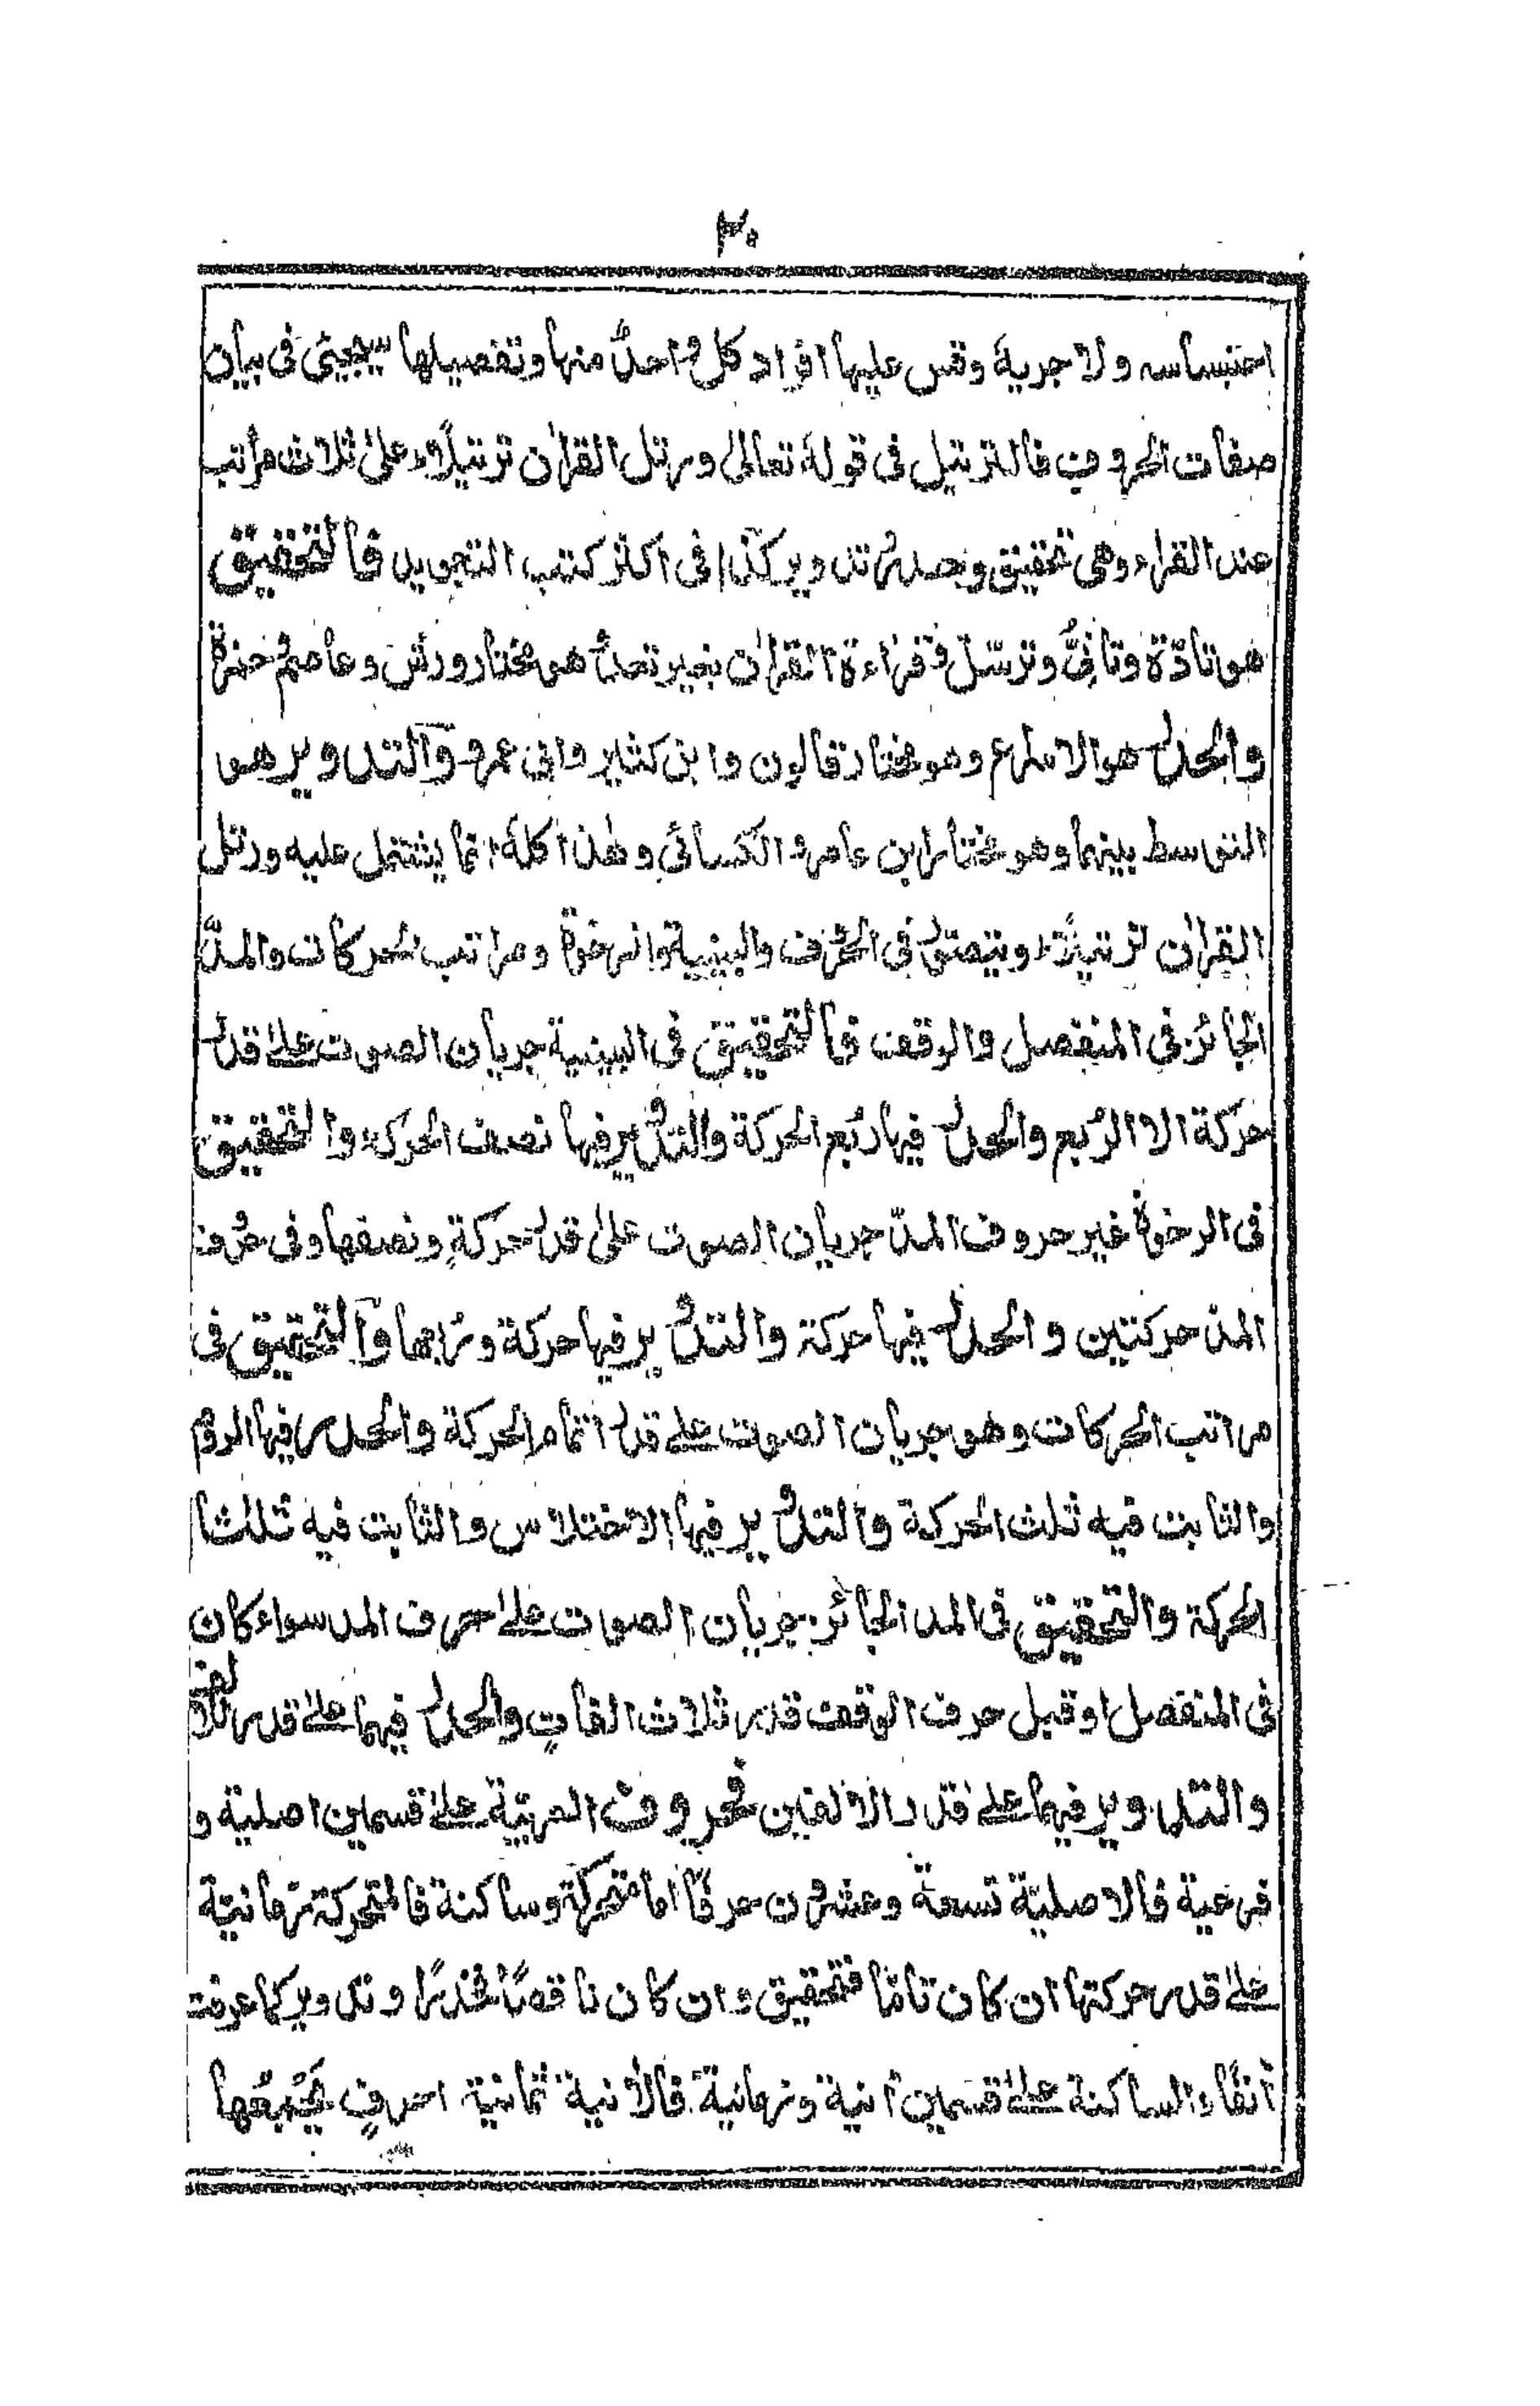 ٣٠
احتباسه ولا جريه وقس عليها افراد كل واحد منها وتفصيلها سيجيئ فى بيان
صفات الحروف فالترتيل فى قوله تعالى ورتل القران ترتيلا وعلى ثلاث مراتب
عند القراء وهى تحقيق وحدر وتدوير كذا فى اكثر كتب التجويد فالتحقيق
هو تادّة وتانّىٌ وترسّل فى قراءة القران بغير تعدٍّ هو مختار ورش وعاصم وحمزة
والحدر هو الاسراع وهو مختار قالون وابن كثير وابى عمرو والتدوير هو
التوسط بينهما وهو مختار ابن عامر والكسائى وهذا كله انما يشتمل عليه ورتل
القران ترتيلا ويتصور فى الحرف والبينية والرخوة ومراتب الحركات والمدّ
الجائز فى المنفصل والوقف فالتحقيق فى البينية جريان الصوت على قدر
حركة الا الرُبع والحدر فيها رُبع الحركة والتدوير فيها نصف الحركة والتحقيق
فى الرخوة غير حروف المدّ جريان الصوت على قدر حركةٍ ونصفها وفى حرف
المدّ حركتين والحدر فيها حركة والتدوير فيها حركة وربعها والتحقيق فى
مراتب الحركات وهو جريان الصوت على قدر اتمام الحركة والحدر فيها الروم
والثابت فيه ثلث الحركة والتدوير فيها الاختلاس والثابت فيه ثلثا
الحركة والتحقيق فى المد الجائز جريان الصوت على حرف المد سواء كان
فى المنفصل او قبل حرف الوقف قدر ثلاث الفاتٍ والحدر فيهما على قدر الالف
والتدوير فيهما على قدر الالفين فحروف العربيّة على قسمين اصلية و
فرعية فالاصليّة تسعة وعشرون حرفًا اما متحركة وساكنة فالمتحركة زمانيّة
على قدر حركتها ان كان تامًا فتحقيق وان كان ناقصًا فحدرًا وتدوير كما عرفت
آنفًا والساكنة على قسمين آنية وزمانية فالآنية ثمانية احرفٍ يجمعها